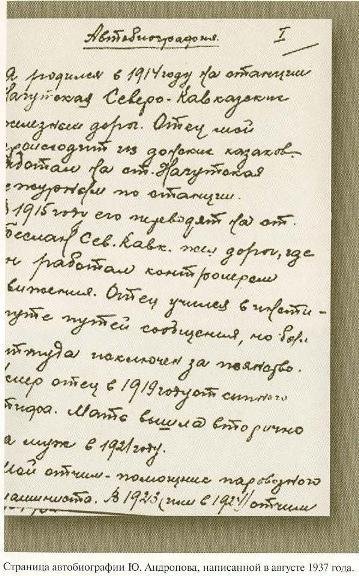 Автобиография. I
Я родился в 1914 году на станции
Нагутская Северо-Кавказские
железные дороги. Отец мой
происходит из донских казаков.
Работал на ст. Нагутская
дежурным по станции.
В 1915 году его переводят на ст.
Беслан Сев. Кавк. жел дороги, где
он работал контролером
движения. Отец учился в инсти-
туте путей сообщения, но был
оттуда исключен за пьянство.
Умер отец в 1919 году от сыпного
тифа. Мать вышла вторично
за муж в 1921 году.
Мой отчим - помощник паровозного
машиниста. В 1923 (или в 1924) отчим
Страница автобиографии Ю. Андропова, написанной в августе 1937 года.